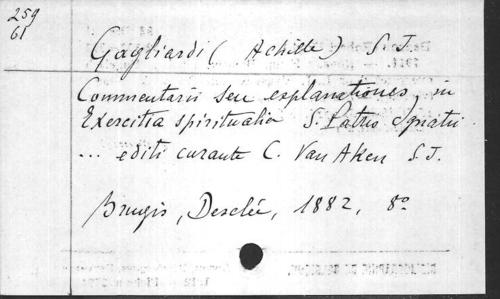 259
61
Gagliardi (Achille) S.J.
Commentarii seu explanationes in
Exercitia spiritualia S. Patris Ignatii
... editi curante C. Van Aken S.J.
Brugis, Desclée, 1882, 8°